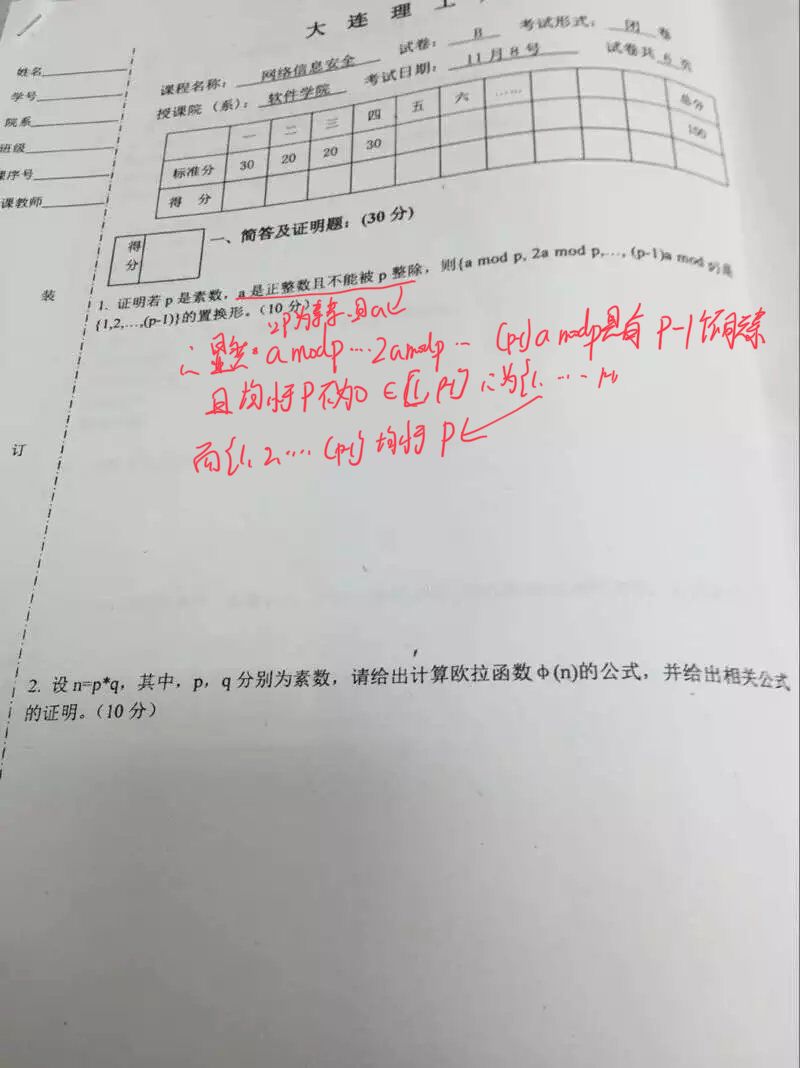 大 连 理 工
姓名
学号
院系
班级
课序号
课教师
课程名称： 网络信息安全 试卷： B 考试形式： 闭 卷
授课院（系）： 软件学院 考试日期： 11 月 8 号 试卷共 6 页
一 二 三 四 五 六 …… 总分
标准分 30 20 20 30 100
得 分
得分
一、简答及证明题：(30 分)
装
1. 证明若 p 是素数，a 是正整数且不能被 p 整除，则{a mod p, 2a mod p,…, (p-1)a mod p}是
{1,2,…,(p-1)}的置换形。（10 分）
∵P为素数.且a
∴ 显然. a modp … 2a modp … (p-1)a modp 具有 P-1
且均小于P不为0 ∈[1, P-1] ∴为{1. …
而{1, 2, … (p-1)} 均小于 P
订
2. 设 n=p*q，其中，p，q 分别为素数，请给出计算欧拉函数 φ(n)的公式，并给出相关公式
的证明。（10 分）